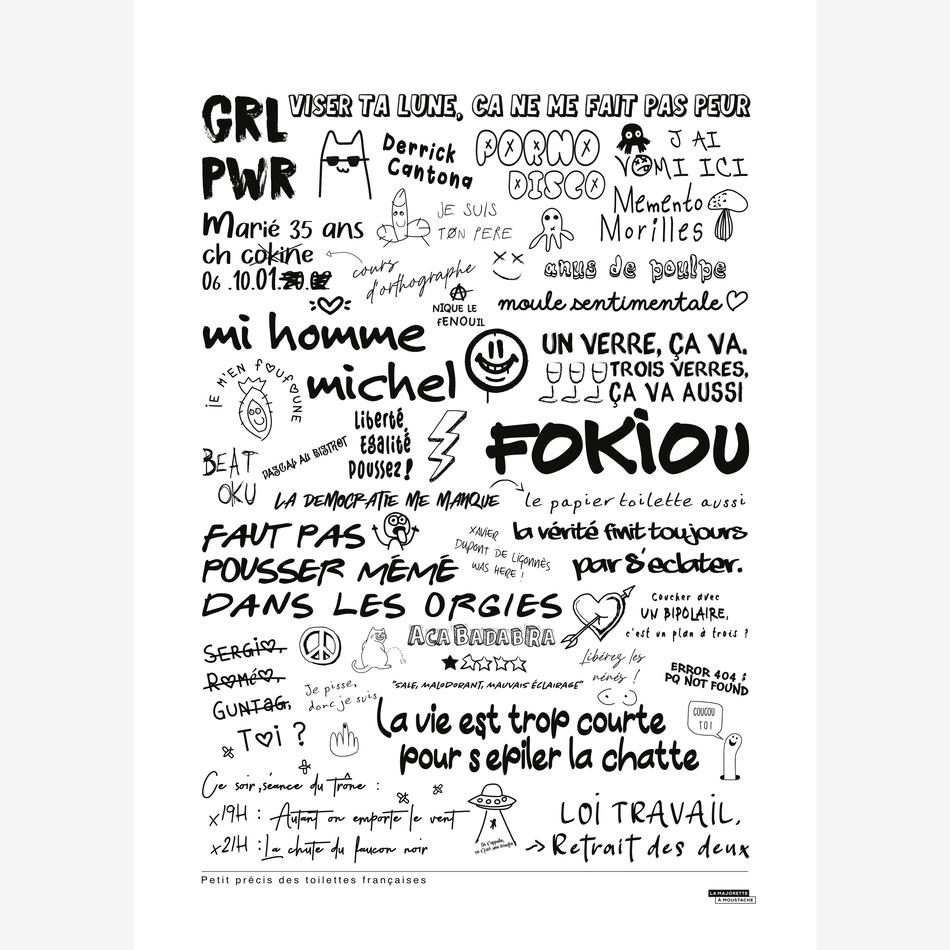 GRL
PWR
VISER TA LUNE, ÇA NE ME FAIT PAS PEUR
Derrick
Cantona
PORNO
DISCO
J'AI
VOMI ICI
Marié 35 ans
ch cokine
06.10.01.
cours
d'orthographe
JE SUIS
TON PERE
Memento
Morilles
anus de poulpe
NIQUE LE
fENOUIL
moule sentimentale
mi homme
michel
UN VERRE, ÇA VA.
TROIS VERRES,
ÇA VA AUSSI
JE M'EN FOUFOUNE
Liberté,
Egalité
Poussez!
FOKiOU
BEAT
OKU
PASCAL AU BISTROT
LA DEMOCRATIE ME MANQUE
le papier toilette aussi
FAUT PAS
POUSSER MÉMÉ
DANS LES ORGIES
XAVIER
DUPONT DE LIGONNÈS
WAS HERE !
la vérité finit toujours
par s'eclater.
Coucher avec
UN BIPOLAIRE,
c'est un plan à trois ?
SERGIO,
ROMÉO,
GUNTAG,
TOi ?
ACABADABRA
"SALE, MALODORANT, MAUVAIS ÉCLAIRAGE"
Libérez les
nénés !
ERROR 404 :
PQ NOT FOUND
Je pisse,
donc je suis
La vie est trop courte
pour s epiler la chatte
COUCOU
TOI
Ce soir, séance du Trône :
x19H : Autant on emporte le vent
x21H : La chute du faucon noir
LOI TRAVAIL,
Retrait des deux
Petit précis des toilettes françaises
LA MAJORETTE
À MOUSTACHE